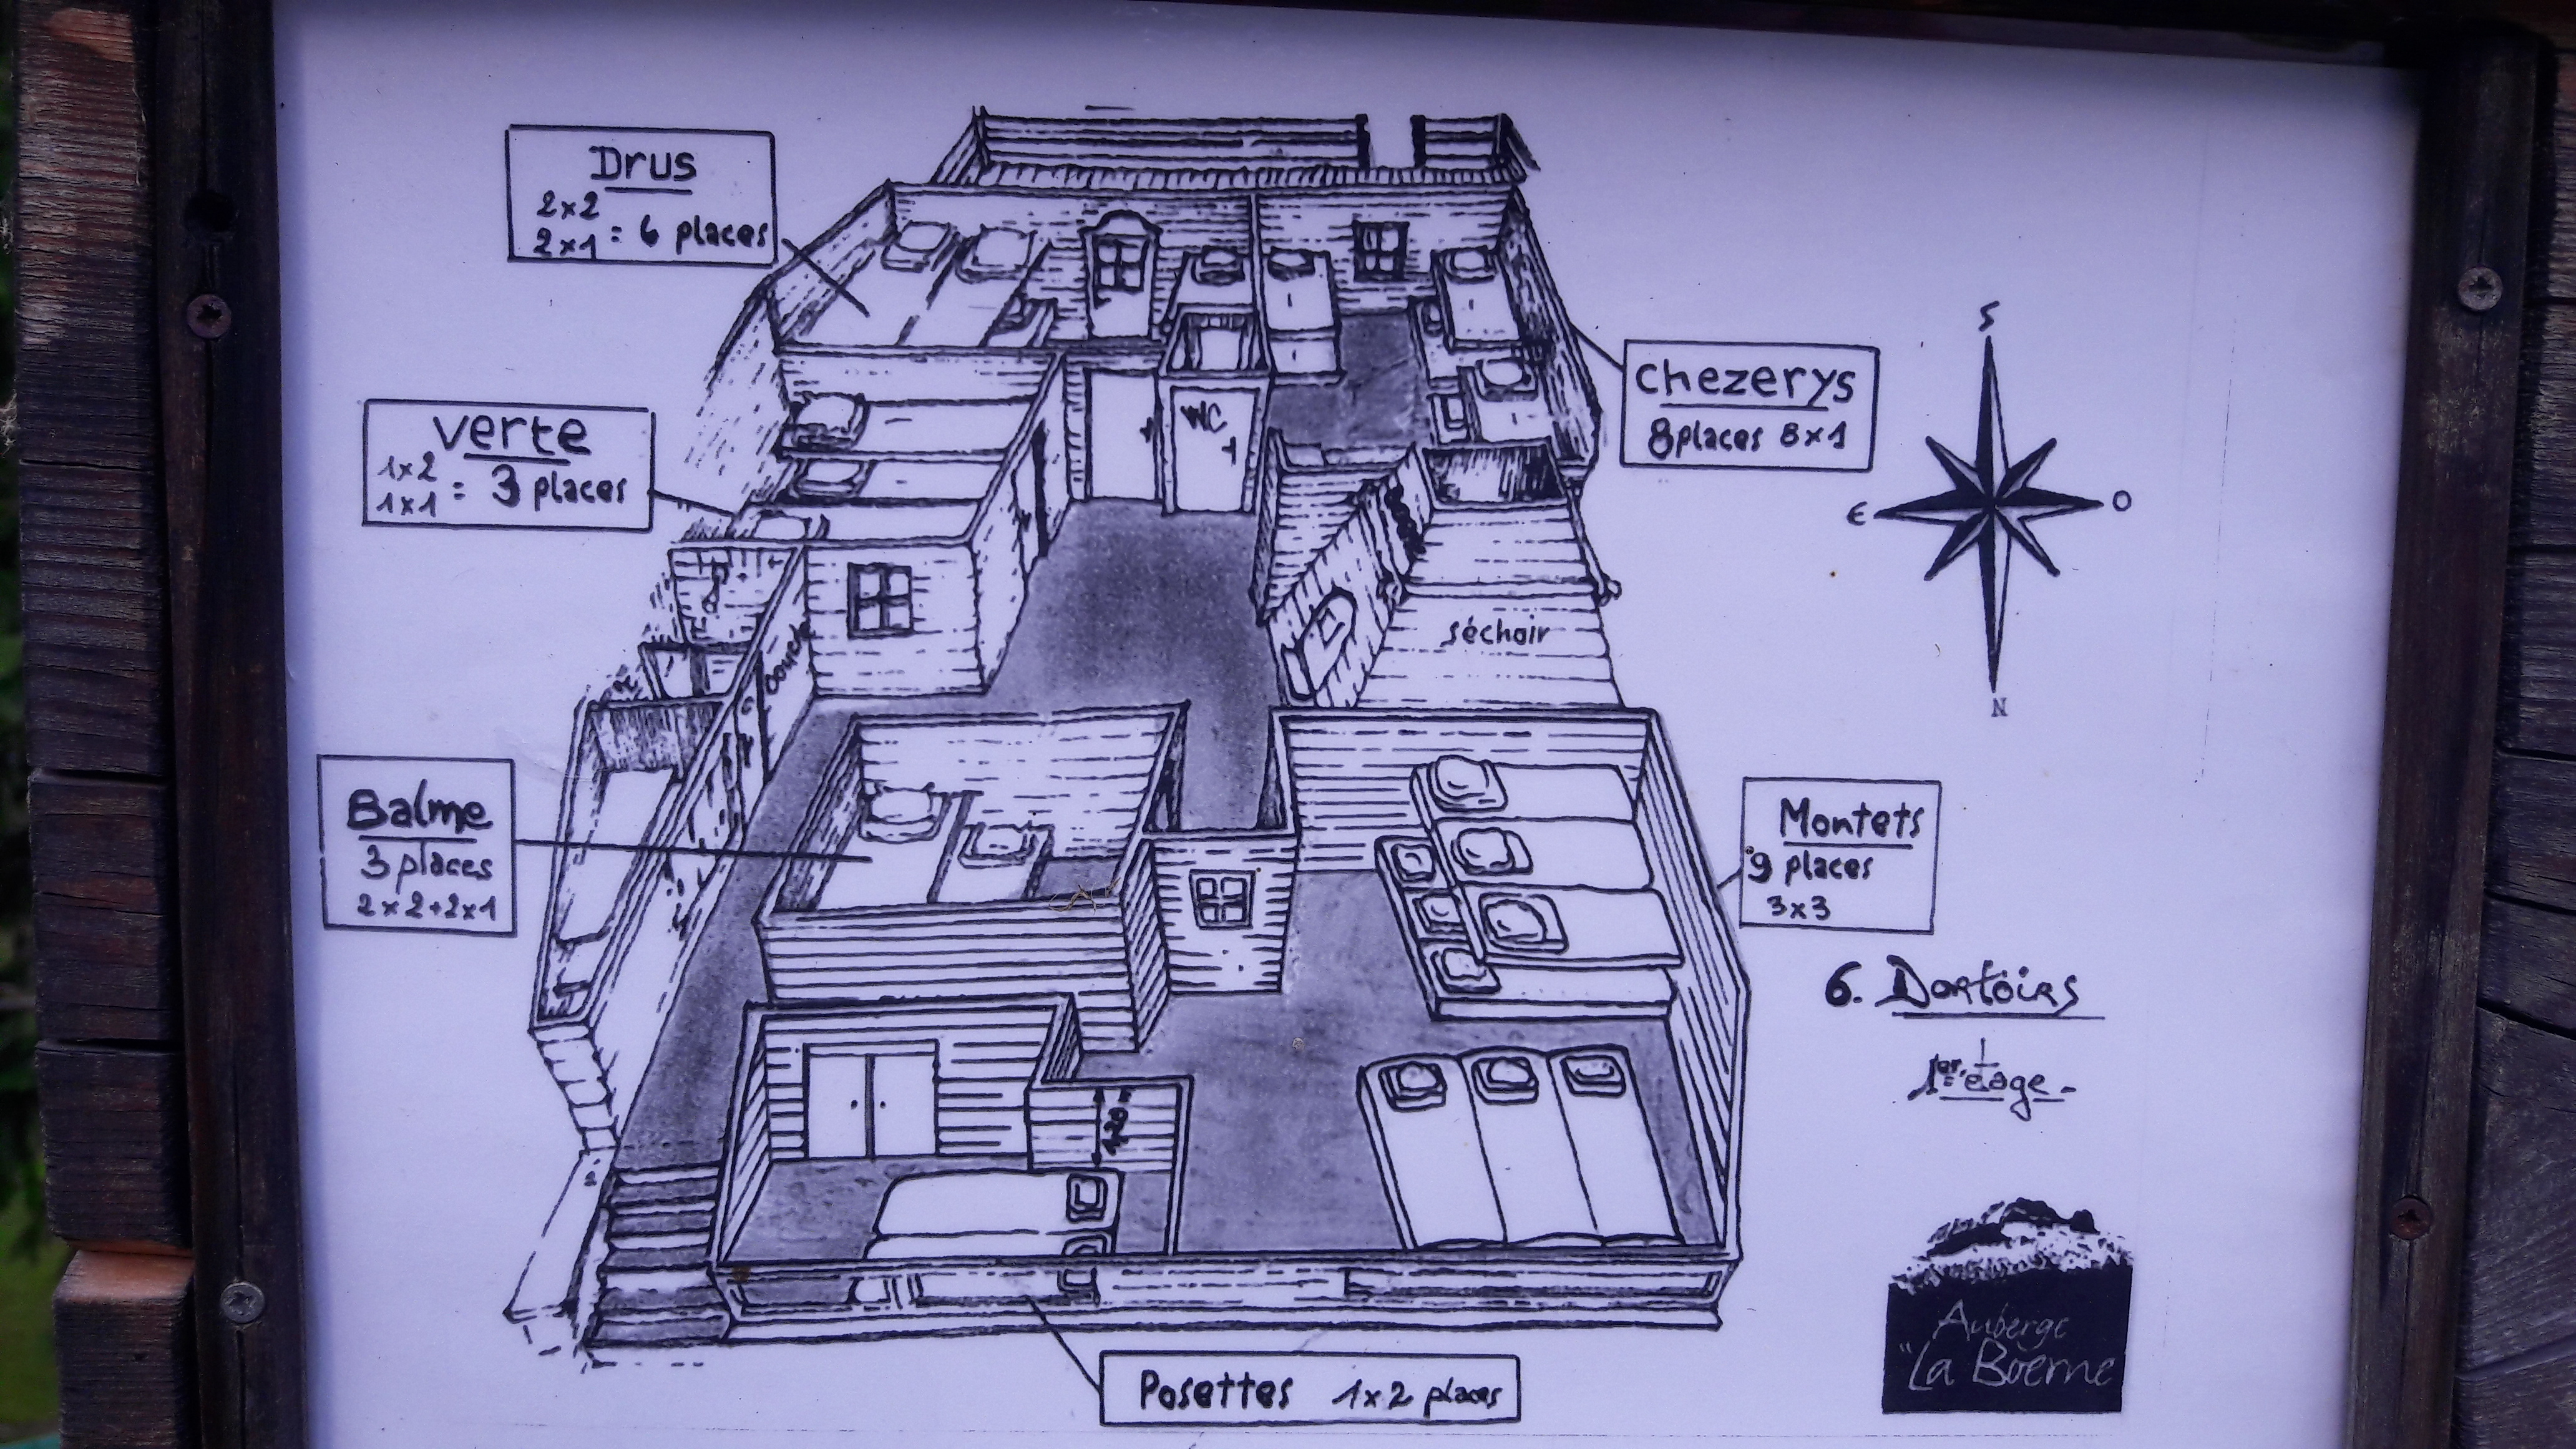 Drus
2x2
2x1 = 6 places
verte
1x2
1x1 = 3 places
WC
chezerys
8places 8x1
S
E
O
N
séchoir
Balme
3 places
2x2+2x1
Montets
9 places
3x3
6. Dortoirs
1er étage-
Posettes 1x2 places
Auberge
"La Boerne